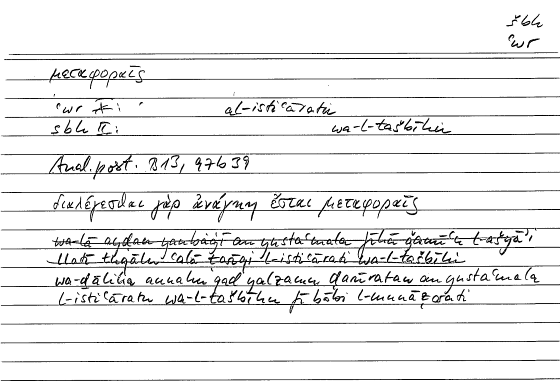 šbh
ʿwr
μεταφοραῖς
ʿwr X: ʾ al-istiʿāratu
šbh II: wa-l-tašbīhu
Anal. post. B13, 97b39
διαλέγεσθαι γὰρ ἀνάγκη ἔσται μεταφοραῖς
wa-lā ayḍan yanbaġī an yustaʿmala fīhā ǧamīʿu l-ašyāʾi
llatī tuqālu ʿalā l-istiʿārati wa-l-tašbīhi
wa-ḏālika annahu qad yalzamu ḍarūratan an yustaʿmala
l-istiʿāratu wa-l-tašbīhu fī bābi l-munāẓarati